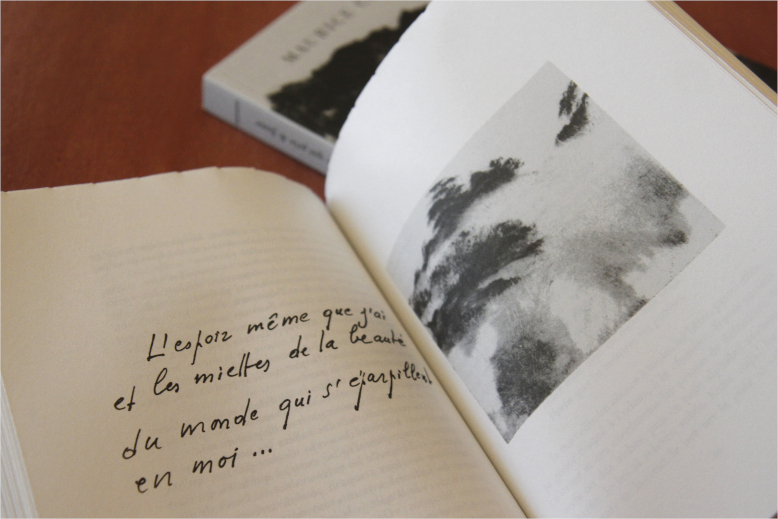 MAURICE
L'espoir même que j'ai
et les miettes de la beauté
du monde qui s'éparpillent
en moi ...